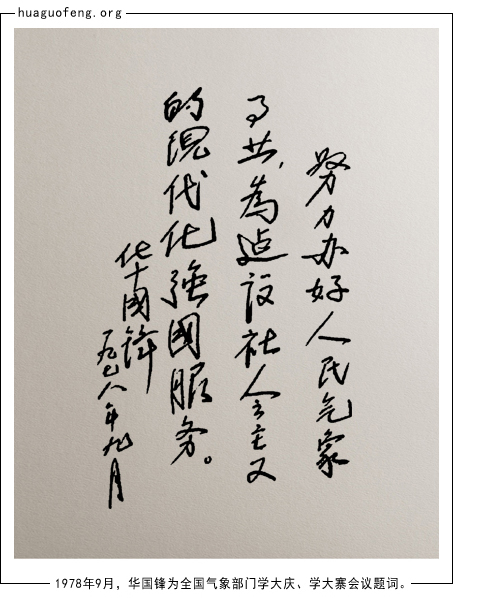 huaguofeng.org
努力办好人民气象
事业，為建设社会主义
的现代化強國服务。
华國锋
一九七八年九月
1978年9月，华国锋为全国气象部门学大庆、学大寨会议题词。